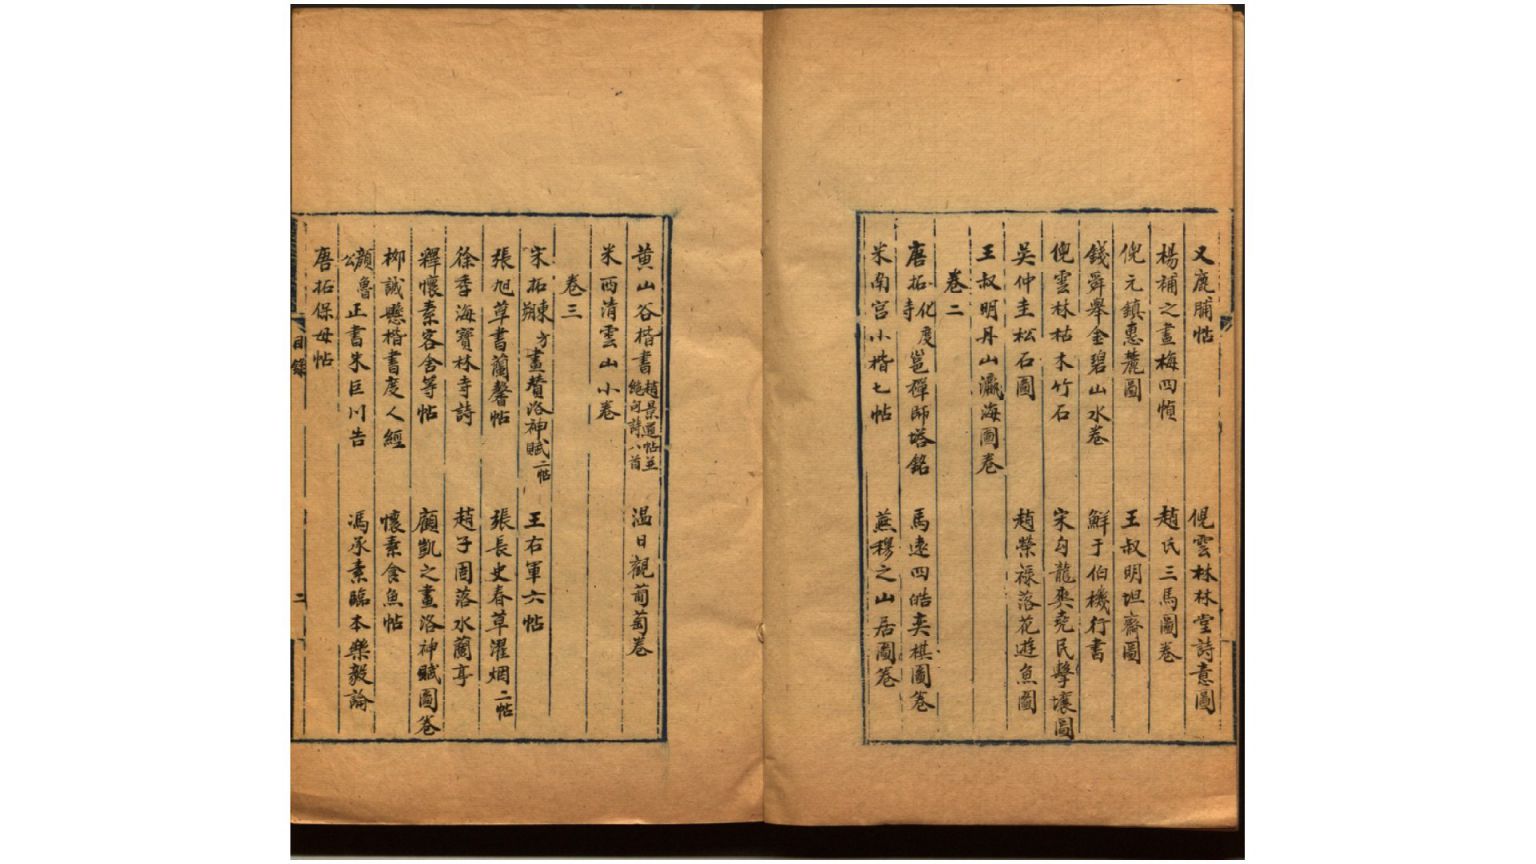 又鹿脯帖 倪雲林林堂詩意圖
楊補之畫梅四幀 趙氏三馬圖卷
倪元鎮惠麓圖 王叔明坦齋圖
錢舜舉金碧山水卷 鮮于伯機行書
倪雲林枯木竹石 宋勾龍爽堯民擊壤圖
吳仲圭松石圖 趙榮祿落花遊魚圖
王叔明丹山瀛海圖卷
卷二
唐拓化度寺邕禪師塔銘 馬遠四皓奕棋圖卷
米南宮小楷七帖 燕穆之山居圖卷
黃山谷楷書趙景道帖並絶句詩八首 温日觀葡萄卷
米西清雲山小卷
卷三
宋拓東方朔畫贊洛神賦二帖 王右軍六帖
張旭草書蘭馨帖 張長史春草濯烟二帖
徐季海寶林寺詩 趙子固落水蘭亭
釋懷素客舍等帖 顧凱之畫洛神賦圖卷
柳誠懸楷書度人經 懷素食魚帖
顏魯公正書朱巨川告 馮承素臨本樂毅論
唐拓保母帖
目錄 二